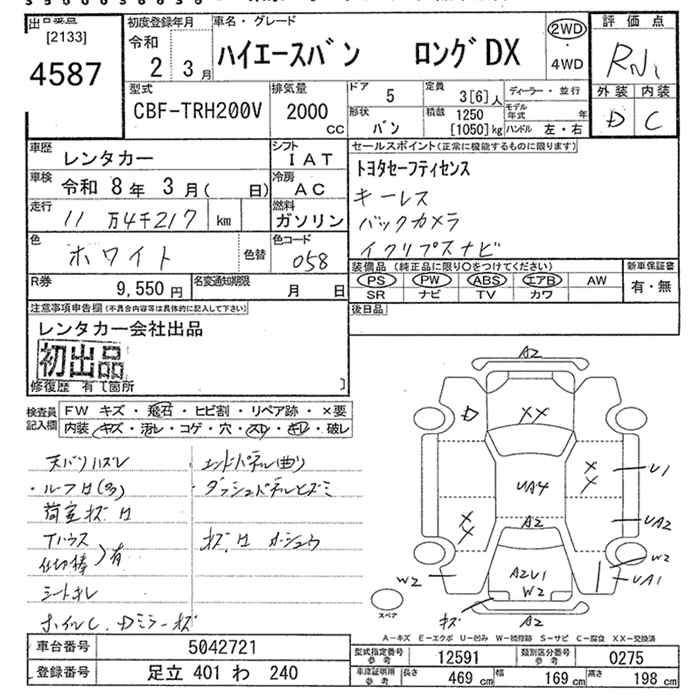 [2133]
4587
初度登録年月
令和
2 3月
車名・グレード
ハイエースバン ロングDX
2WD
・
4WD
評価点
外装 内装
D C
型式
CBF-TRH200V
排気量
2000
CC
ドア
5
定員
3[6]人
形状
バン
積載 1250
[1050]kg
ディーラー・並行
モデル年式 年
ハンドル 左・右
車歴
レンタカー
シフト
IAT
車検
令和 8年 3月( 日)
冷房
AC
走行
11万4千217 km
燃料
ガソリン
色
ホワイト
色替
色コード
058
R券
9,550円
名変通知期限
月 日
セールスポイント(正常に機能するものに限ります)
トヨタセーフティセンス
キーレス
バックカメラ
イクリプスナビ
装備品(純正品に限り○をつけてください)
PS PW ABS エアB AW
SR ナビ TV カワ
新車保証書
有・無
後日品
注意事項申告欄(不具合内容等は具体的に記入して下さい)
レンタカー会社出品
初出品
修復歴 有〔箇所 〕
検査員
記入欄
FW キズ・飛石・ヒビ割・リペア跡・×要
内装・キズ・汚レ・コゲ・穴・スレ・キレ・破レ
天バリハズレ
エンドパネル曲り
・ルーフ凹(多)
・ダッシュパネルヒズミ
荷室キズ凹
Tハウス
仕切棒 〉有
キズ、凹 カーシュウ
シートキレ
ホイルC、Dミラーキズ
A2
D
XX
X
X
U1
UA4
A2
X
X
UA2
W2
A2U1
W2
W2
UA1
スペア
キズ
A2
A-キズ E-エクボ U-凹み W-補修跡 S-サビ C-腐食 XX-交換済
車台番号
5042721
登録番号
足立 401 わ 240
型式指定番号
参考
12591
類別区分番号
参考
0275
車庫証明用
参考
長さ 469cm 幅 169cm 高さ 198cm